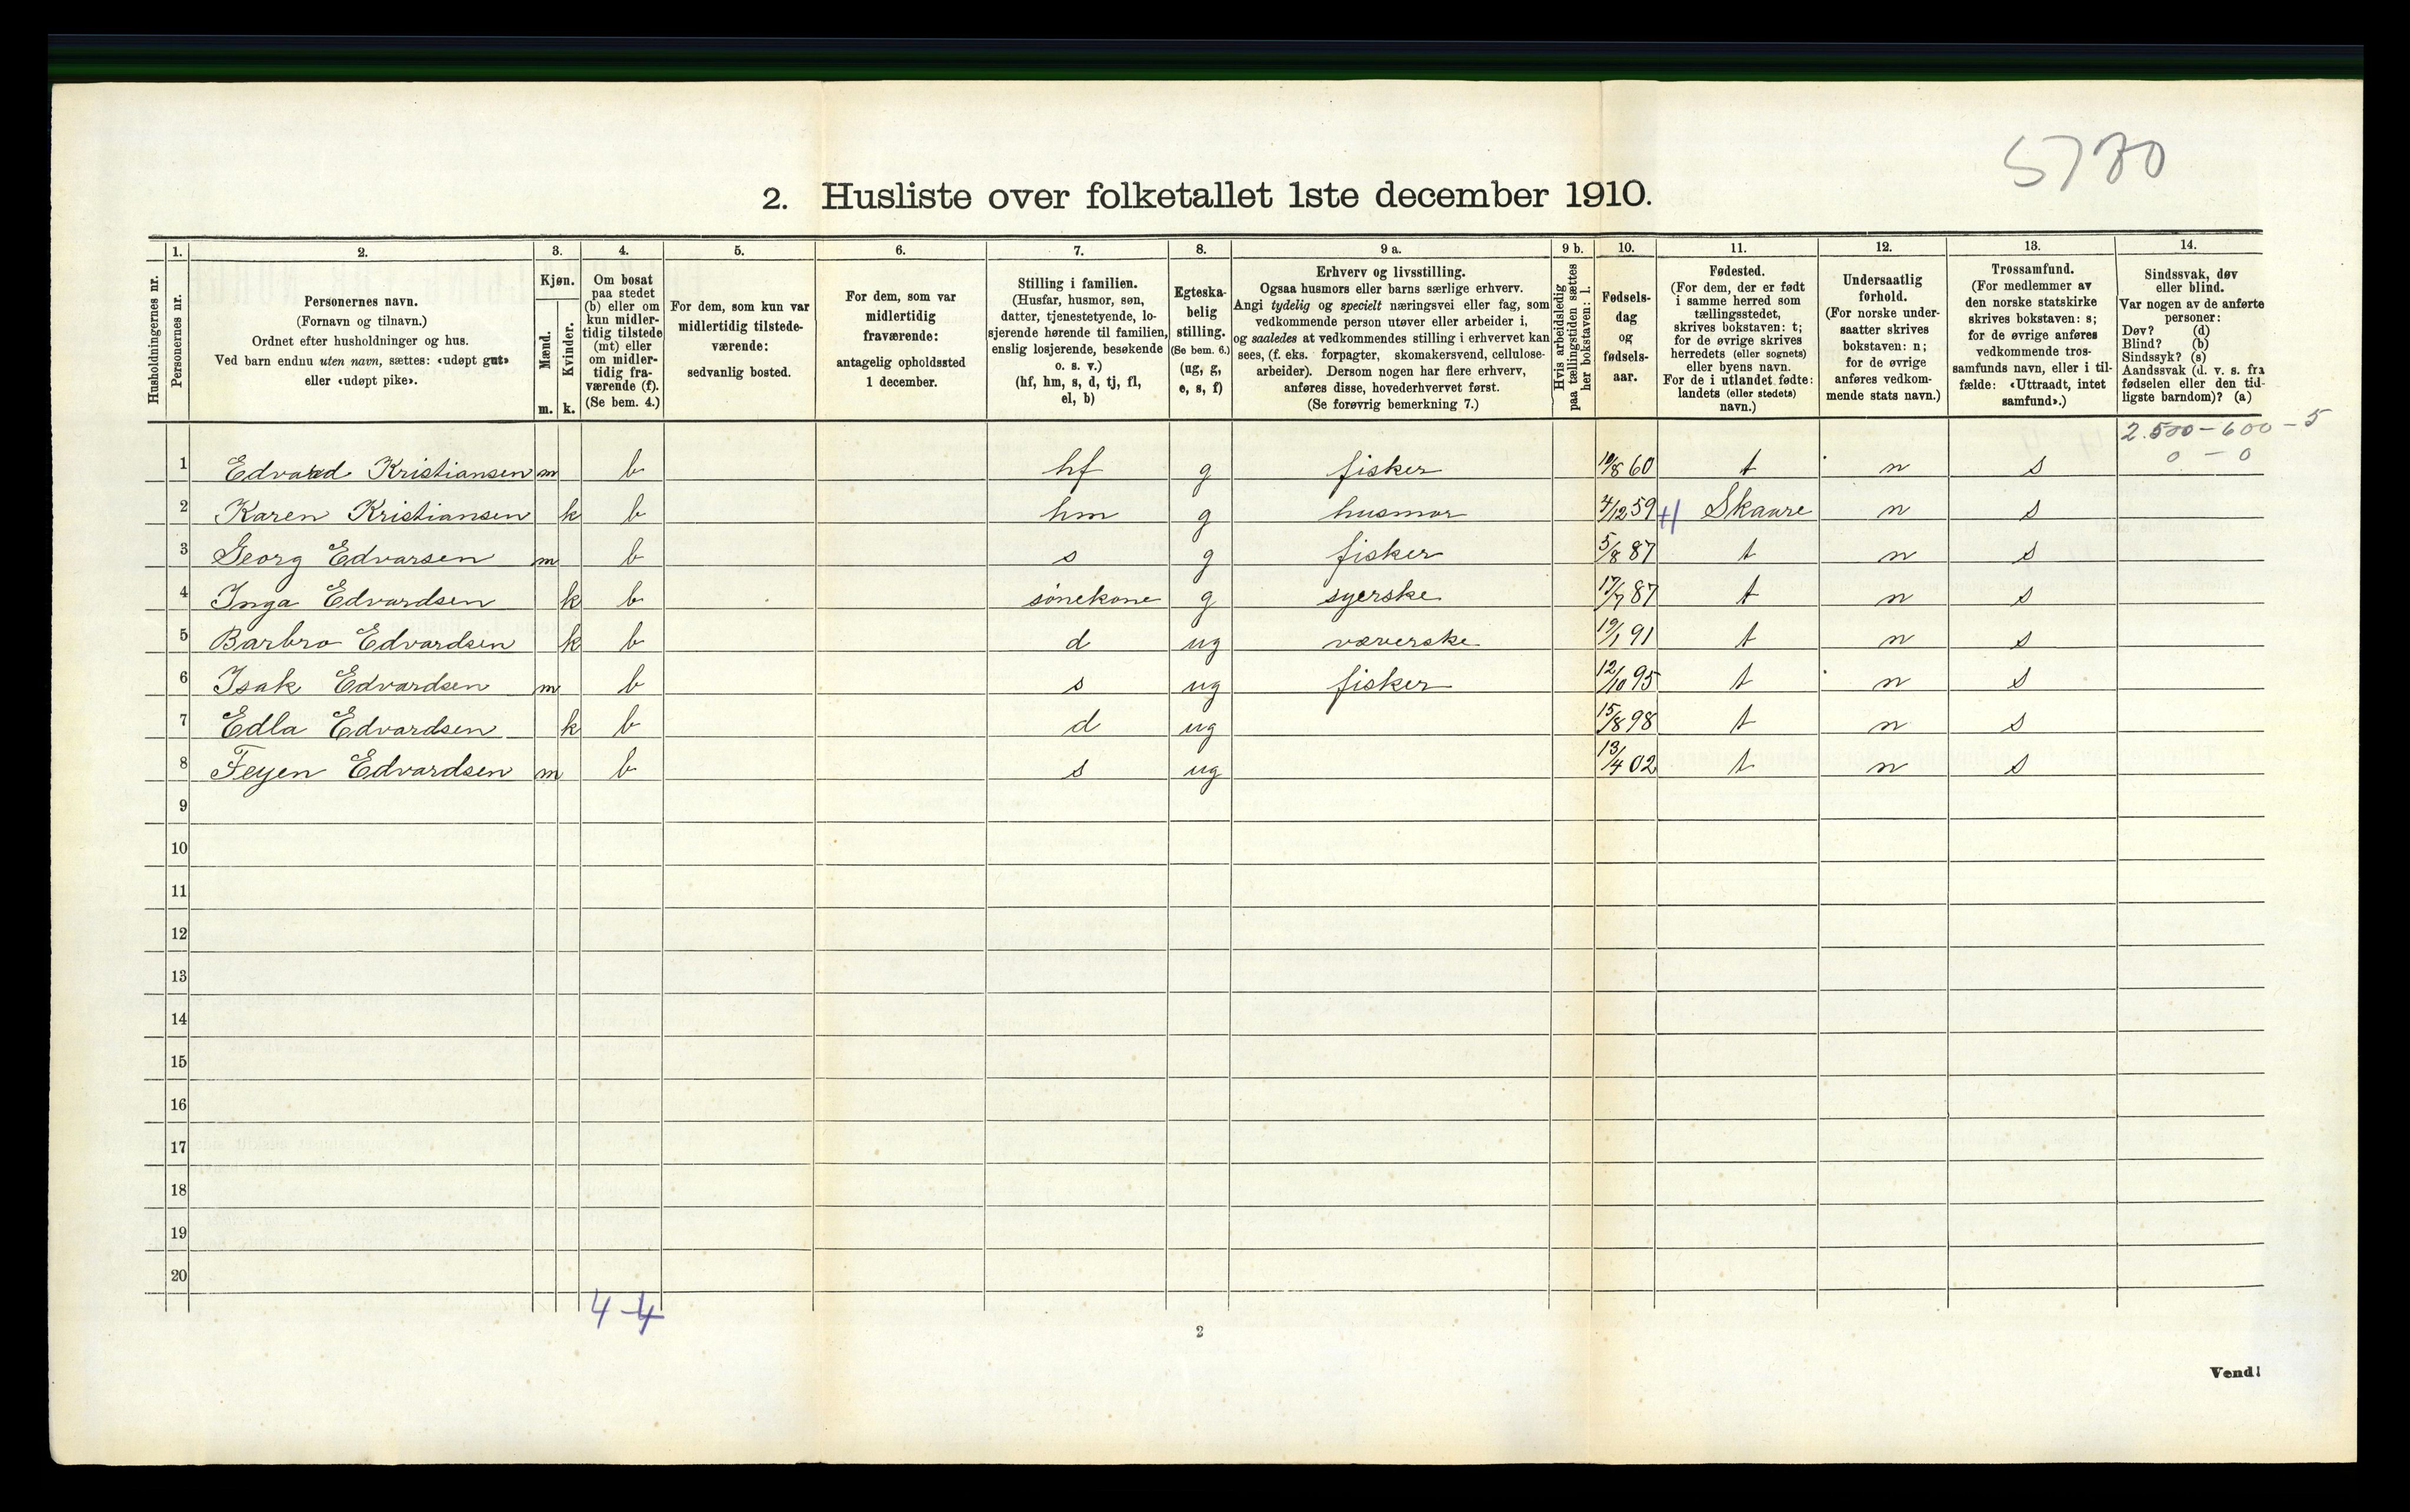 5770
2. Husliste over folketallet 1ste december 1910.
Husholdningernes nr.
1. Personernes nr.
2. Personernes navn.
(Fornavn og tilnavn.)
Ordnet efter husholdninger og hus.
Ved barn endnu uten navn, sættes: «udøpt gut»
eller «udøpt pike».
3. Kjøn.
Mænd. m.
Kvinder. k.
4. Om bosat
paa stedet
(b) eller om
kun midler-
tidig tilstede
(mt) eller
om midler-
tidig fra-
værende (f).
(Se bem. 4.)
5. For dem, som kun var
midlertidig tilstede-
værende:
sedvanlig bosted.
6. For dem, som var
midlertidig
fraværende:
antagelig opholdssted
1 december.
7. Stilling i familien.
(Husfar, husmor, søn,
datter, tjenestetyende, lo-
sjerende hørende til familien,
enslig losjerende, besøkende
o. s. v.)
(hf, hm, s, d, tj, fl,
el, b)
8. Egteska-
belig
stilling.
(Se bem. 6.)
(ug, g,
e, s, f)
9 a. Erhverv og livsstilling.
Ogsaa husmors eller barns særlige erhverv.
Angi tydelig og specielt næringsvei eller fag, som
vedkommende person utøver eller arbeider i,
og saaledes at vedkommendes stilling i erhvervet kan
sees, (f. eks. forpagter, skomakersvend, cellulose-
arbeider). Dersom nogen har flere erhverv,
anføres disse, hovederhvervet først.
(Se forøvrig bemerkning 7.)
9 b. Hvis arbeidsledig
paa tællingstiden sættes
her bokstaven: l.
10. Fødsels-
dag
og
fødsels-
aar.
11. Fødested.
(For dem, der er født
i samme herred som
tællingsstedet,
skrives bokstaven: t;
for de øvrige skrives
herredets (eller sognets)
eller byens navn.
For de i utlandet fødte:
landets (eller stedets)
navn.)
12. Undersaatlig
forhold.
(For norske under-
saatter skrives
bokstaven: n;
for de øvrige
anføres vedkom-
mende stats navn.)
13. Trossamfund.
(For medlemmer av
den norske statskirke
skrives bokstaven: s;
for de øvrige anføres
vedkommende tros-
samfunds navn, eller i til-
fælde: «Uttraadt, intet
samfund».)
14. Sindssvak, døv
eller blind.
Var nogen av de anførte
personer:
Døv? (d)
Blind? (b)
Sindssyk? (s)
Aandssvak (d. v. s. fra
fødselen eller den tid-
ligste barndom)? (a)
2.500-600-5
0 - 0
1 Edvard Kristiansen m b hf g fisker 10/8 60 t n s
2 Karen Kristiansen k b hm g husmor 4/12 59 Skaare n s
3 Georg Edvarsen m b s g fisker 5/8 87 t n s
4 Inga Edvardsen k b sönekone g syerske 17/7 87 t n s
5 Barbro Edvardsen k b d ug væverske 19/1 91 t n s
6 Isak Edvardsen m b s ug fisker 12/10 95 t n s
7 Edla Edvardsen k b d ug 15/8 98 t n s
8 Feyen Edvardsen m b s ug 13/4 02 t n s
9
10
11
12
13
14
15
16
17
18
19
20
4-4
2
Vend!